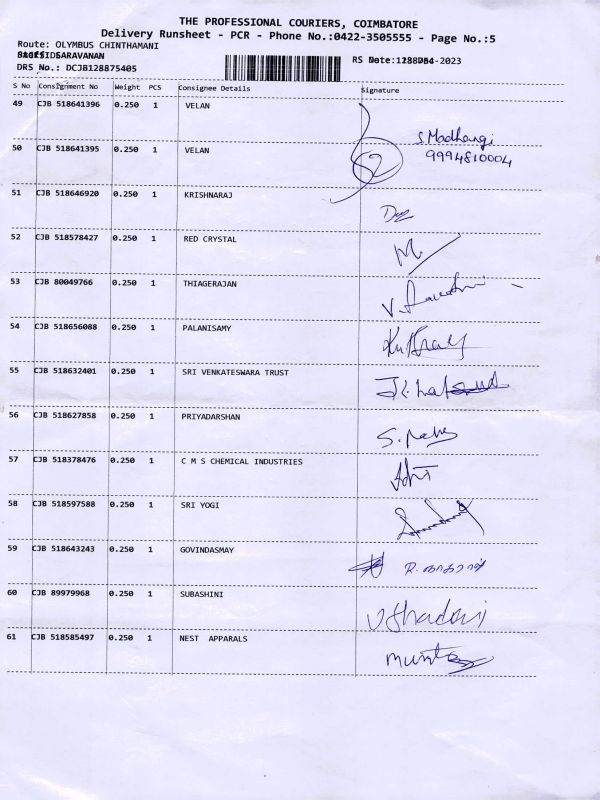 THE PROFESSIONAL COURIERS, COIMBATORE
Delivery Runsheet - PCR - Phone No.:0422-3505555 - Page No.:5
Route: OLYMBUS CHINTHAMANI
SARAVANAN
RS Date: -2023
DRS No.: DCJB128875405
S No Consignment No Weight PCS Consignee Details Signature
49 CJB 518641396 0.250 1 VELAN
S Madhangi
50 CJB 518641395 0.250 1 VELAN
9994810004
51 CJB 518646920 0.250 1 KRISHNARAJ
52 CJB 518578427 0.250 1 RED CRYSTAL
53 CJB 80049766 0.250 1 THIAGERAJAN
54 CJB 518656088 0.250 1 PALANISAMY
55 CJB 518632401 0.250 1 SRI VENKATESWARA TRUST
56 CJB 518627858 0.250 1 PRIYADARSHAN
57 CJB 518378476 0.250 1 C M S CHEMICAL INDUSTRIES
58 CJB 518597588 0.250 1 SRI YOGI
59 CJB 518643243 0.250 1 GOVINDASMAY
60 CJB 89979968 0.250 1 SUBASHINI
61 CJB 518585497 0.250 1 NEST APPARALS